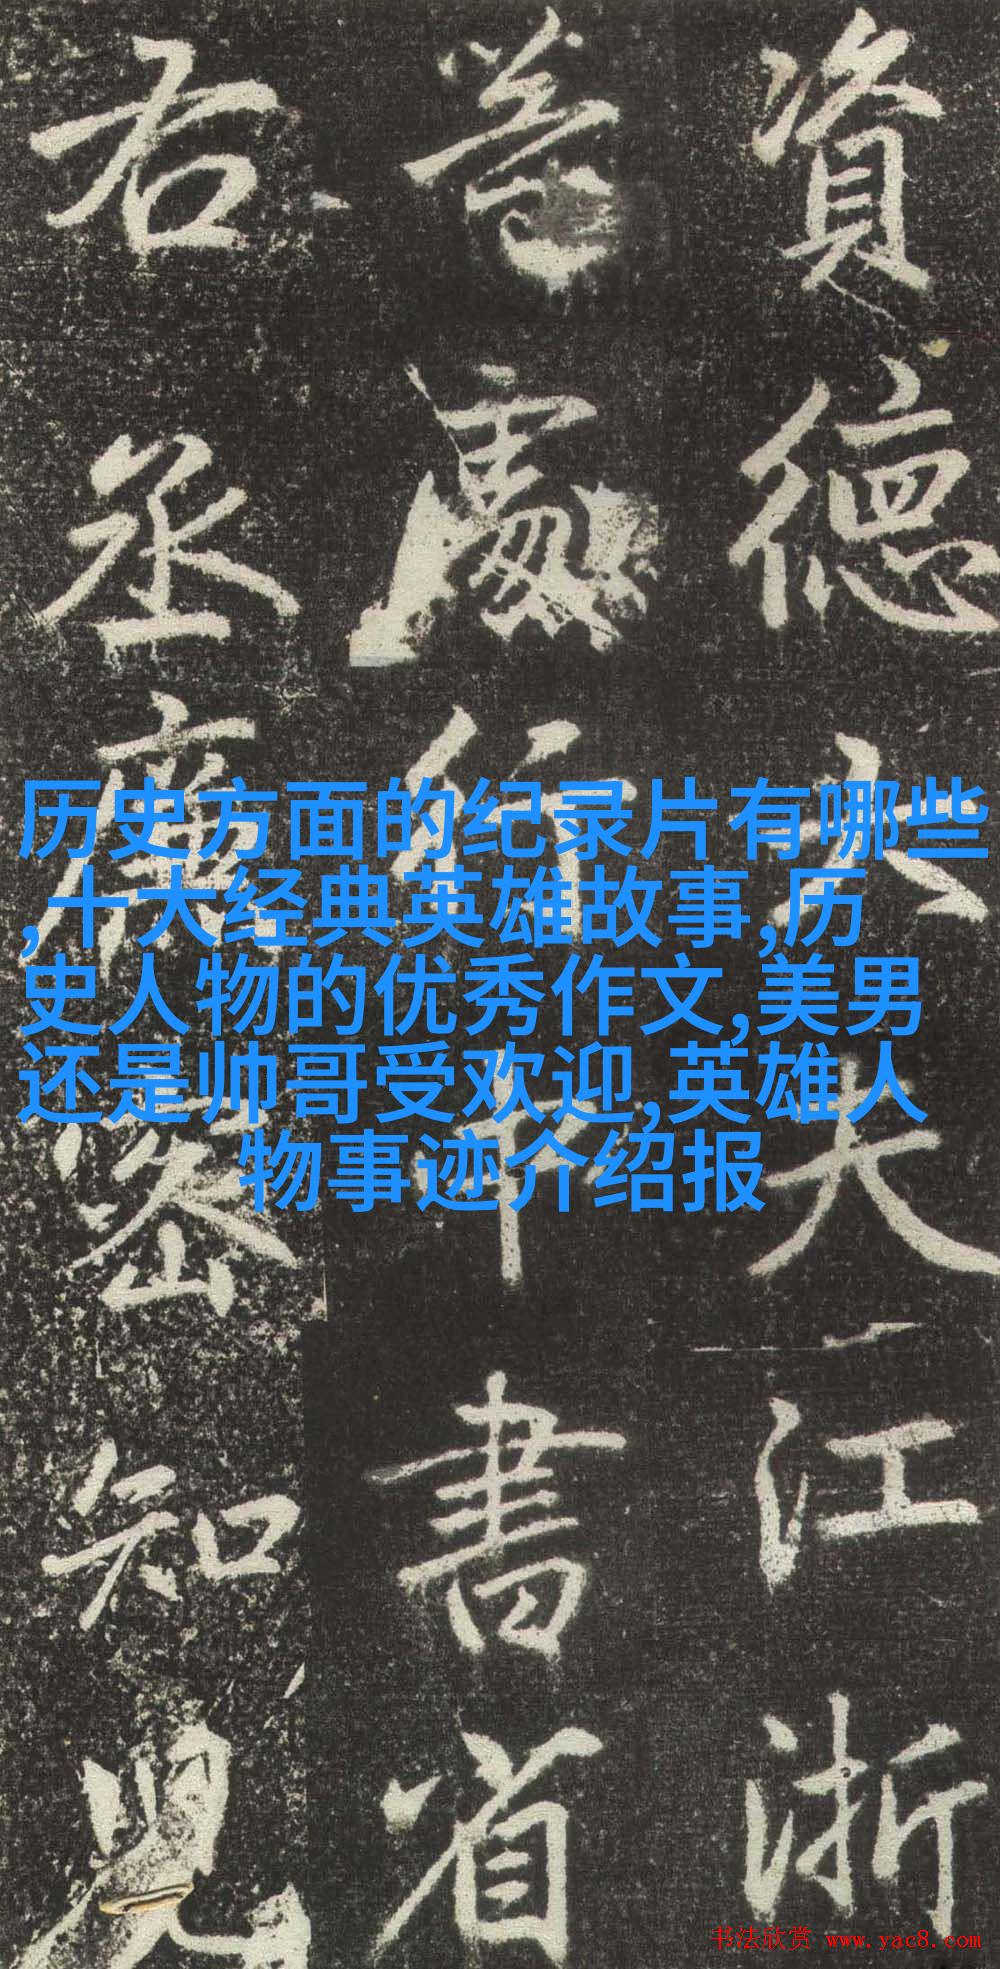 資德大夫江浙
等處行中書省
右丞廉密知兒
历史方面的纪录片有哪些
,十大经典英雄故事,历
史人物的优秀作文,美男
还是帅哥受欢迎,英雄人
物事迹介绍报
书法欣赏 www.yac8.com